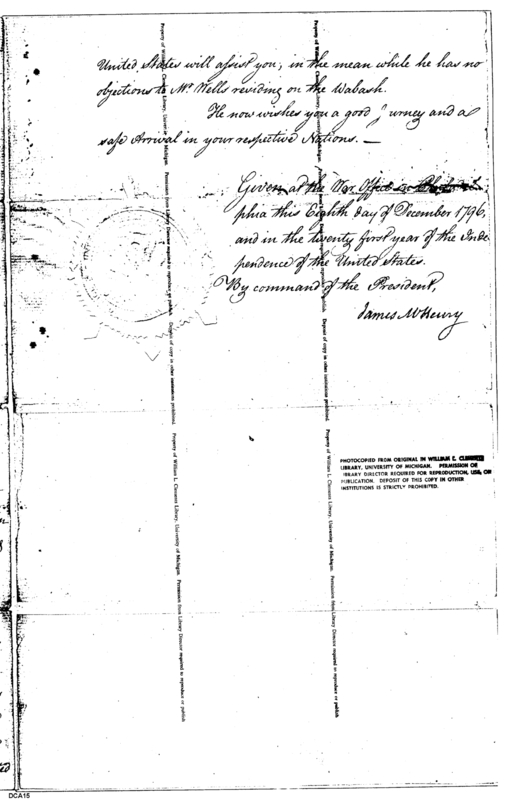 United States will assist you; in the mean while he has no
objections to Mr Wells residing on the Wabash.
He now wishes you a good j urney and a
safe Arrival in your respective Nations. —
Given at the War Office in Philadel
phia this Eighth day of December 1796,
and in the twenty first year of the Inde
pendence of the United States.
By command of the President,
James McHenry
PHOTOCOPIED FROM ORIGINAL IN WILLIAM L. CLEMENTS
LIBRARY, UNIVERSITY OF MICHIGAN. PERMISSION OF
LIBRARY DIRECTOR REQUIRED FOR REPRODUCTION, USE, OR
PUBLICATION. DEPOSIT OF THIS COPY IN OTHER
INSTITUTIONS IS STRICTLY PROHIBITED.
Property of William L. Clements Library, University of Michigan. Permission from Library Director required to reproduce or publish. Deposit of copy in other institutions prohibited. Property of William L. Clements Library, University of Michigan. Permission from Library Director required to reproduce or publish
Property of William L. Clements Library, University of Michigan. Permission from Library Director required to reproduce or publish. Deposit of copy in other institutions prohibited. Property of William L. Clements Library, University of Michigan. Permission from Library Director required to reproduce or publish
DCA15